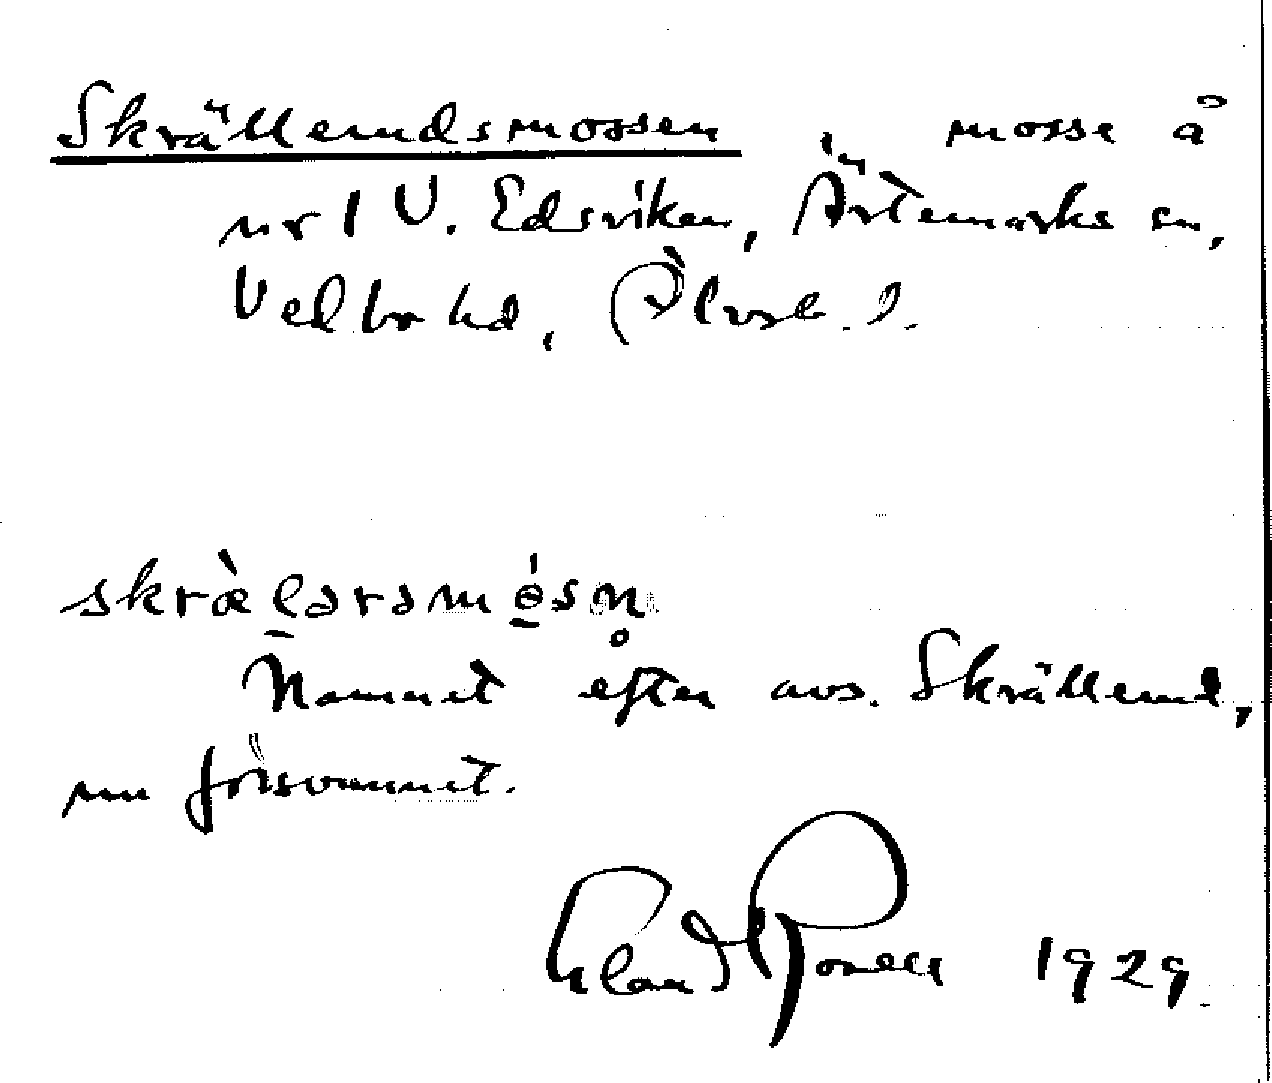 Skrällerudsmossen, mosse å
nr 1 V. Edsviken, Ärtemarks sn,
Vedbo hd, Älvsb. l.
skrὰlərsmósn̥
Namnet efter avs. Skrällerud,
nu försvunnet.
1929.